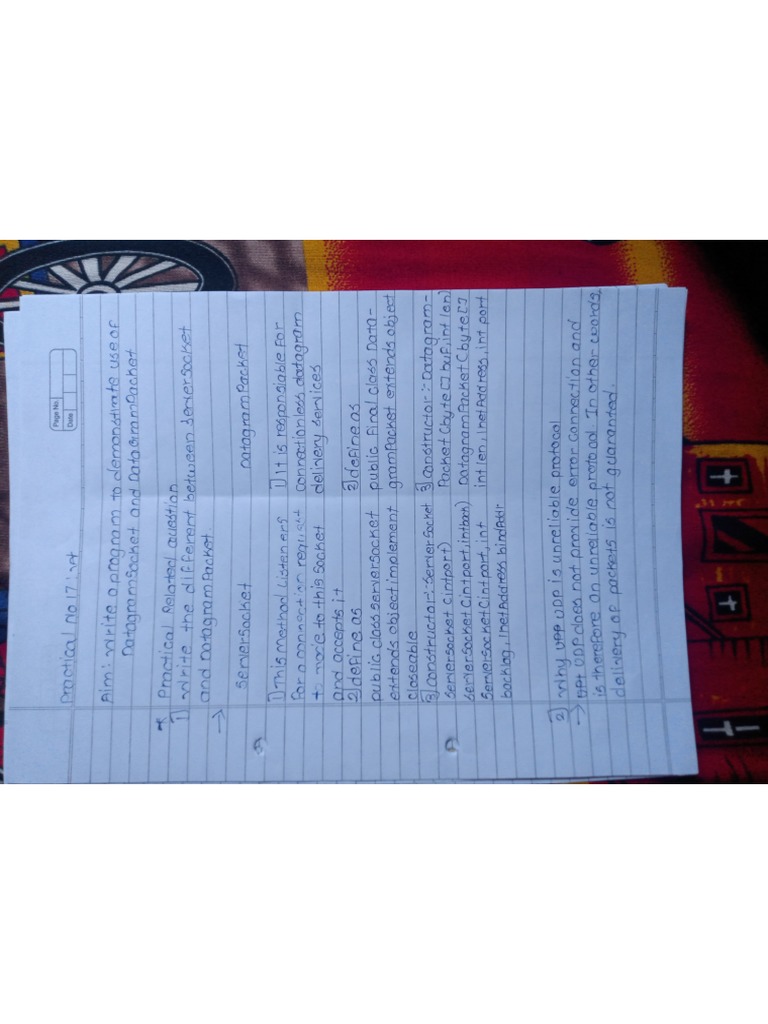 Page No.
Date
Practical No 17: int
Aim: Write a program to demonstrate use of
DatagramSocket and DatagramPacket
* Practical Related question
1) Write the different between serversocket
and DatagramPacket.
→ serversocket
1) This method Listeners
for a connection request
to made to this socket
and accepts it
2) define as
public class serversocket
extends object implement
closeable
3) constructor:- serversocket
serversocket (int port)
serversocket (int port, int back)
serversocket (int port, int
backlog, InetAddress bindAddr
DatagramPacket
1) It is responsiable for
connectionless datagram
delivery services
2) define as
public final class Data-
gramPacket extends object
3) constructor:- Datagram-
Packet (byte[] buf, int len)
DatagramPacket (byte[]
int len, InetAddress, int port
2) Why UDP is unreliable protocol
→ UDP does not provide error connection and
is therefore an unreliable protocol In other words,
delivery of packets is not guaranted.